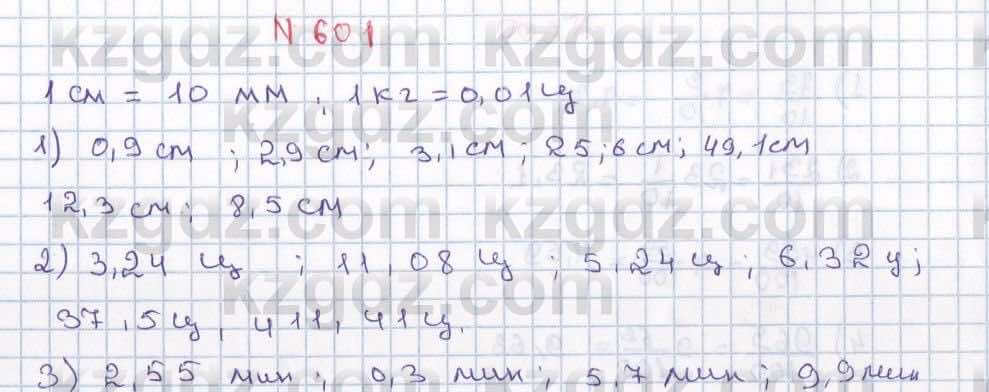 N 601
1 см = 10 мм ; 1 кг = 0,01 ц
1) 0,9 см ; 2,9 см; 3,1 см; 25,6 см; 49,1 см
12,3 см; 8,5 см
2) 3,24 ц ; 11,08 ц ; 5,24 ц ; 6,32 ц;
37,5 ц, 411,41 ц.
3) 2,55 мин ; 0,3 мин; 5,7 мин; 9,9 мин
kzgdz.com